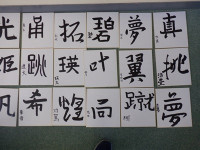 光 甬 拓 碧 夢 真
姫 跳 瑛 叶 翼 挑
凡 希 煌 尚 蹴 夢